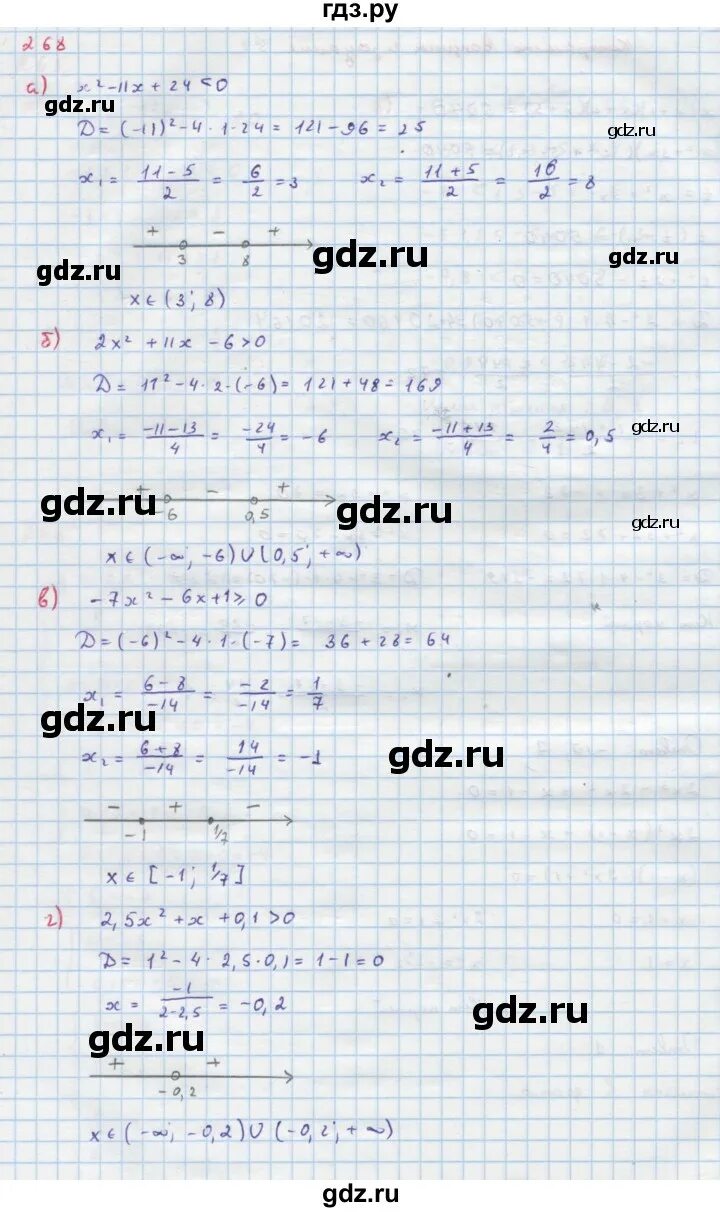 гдз.ру
268
а) x² - 11x + 24 < 0
gdz.ru
D = (-11)² - 4 · 1 · 24 = 121 - 96 = 25
gdz.ru
x₁ = (11 - 5)/2 = 6/2 = 3    x₂ = (11 + 5)/2 = 16/2 = 8
+ - +
3 8
gdz.ru gdz.ru gdz.ru
x ∈ (3; 8)
б) 2x² + 11x - 6 > 0
D = 11² - 4 · 2 · (-6) = 121 + 48 = 169
x₁ = (-11 - 13)/4 = -24/4 = -6    x₂ = (-11 + 13)/4 = 2/4 = 0,5
gdz.ru
+ - +
-6 0,5
gdz.ru gdz.ru gdz.ru
x ∈ (-∞; -6) ∪ (0,5; +∞)
в) -7x² - 6x + 1 ⩾ 0
D = (-6)² - 4 · 1 · (-7) = 36 + 28 = 64
x₁ = (6 - 8)/-14 = -2/-14 = 1/7
gdz.ru
x₂ = (6 + 8)/-14 = 14/-14 = -1
gdz.ru
- + -
-1 1/7
x ∈ [-1; 1/7]
г) 2,5x² + x + 0,1 > 0
D = 1² - 4 · 2,5 · 0,1 = 1 - 1 = 0
x = -1/(2 - 2,5) = -0,2
gdz.ru gdz.ru
+ +
-0,2
x ∈ (-∞; -0,2) ∪ (-0,2; +∞)
gdz.ru